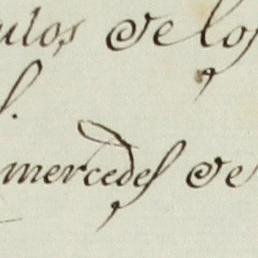 ulos de los
mercedes de